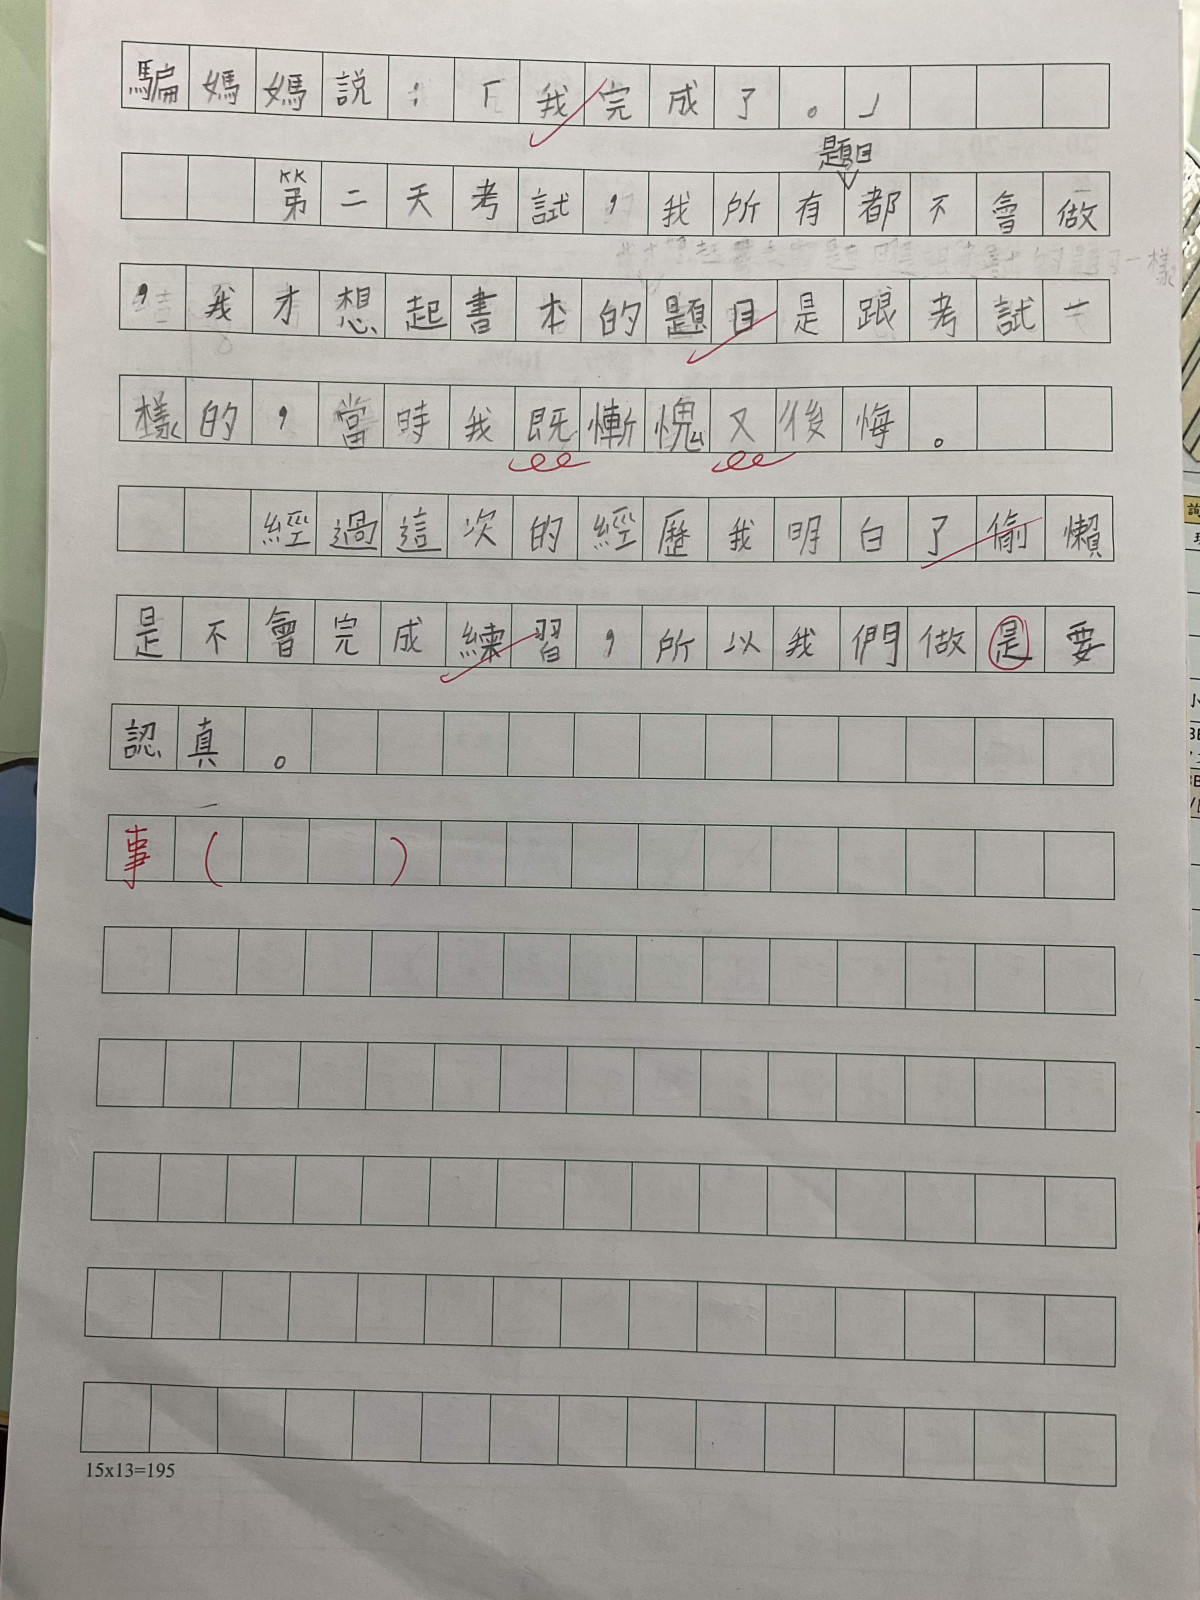 騙媽媽說：「我完成了。」
題目
第二天考試，我所有都不會做
，我才想起書本的題目是跟考試一
樣的，當時我既慚愧又後悔。
經過這次的經歷我明白了偷懶
是不會完成練習，所以我們做是要
認真。
事（　　）
15x13=195